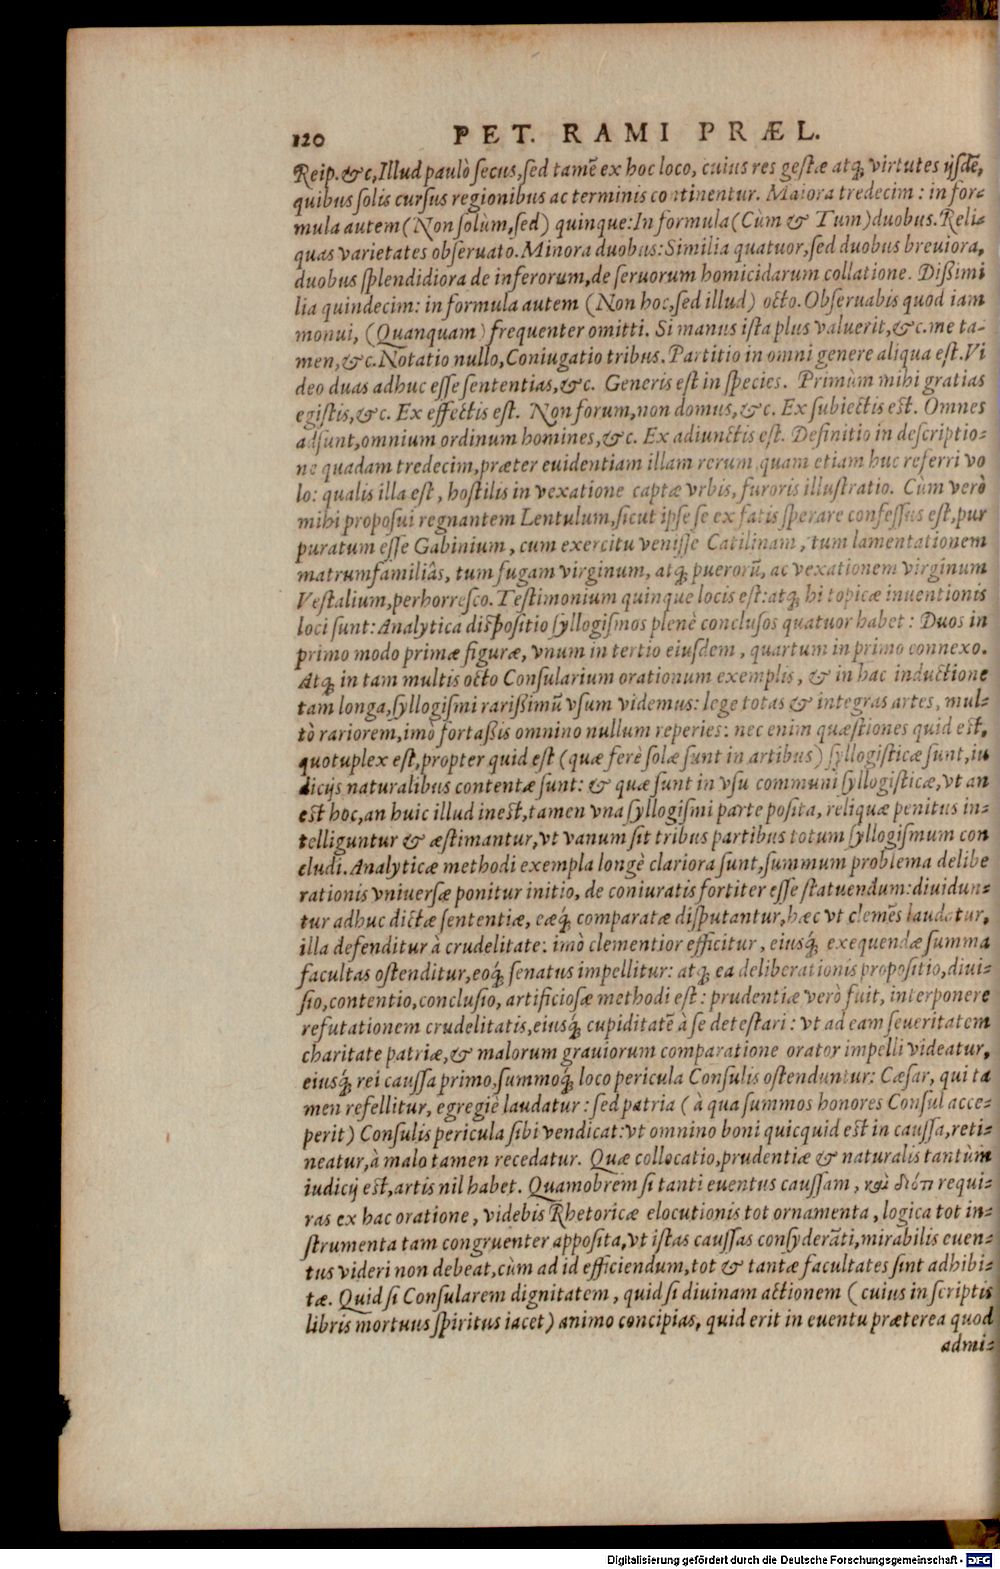 120 PET. RAMI PRÆL.
Reip. &c, Illud paulò secus, sed tamē ex hoc loco, cuius res gestæ atq; virtutes ijsdē,
quibus solis cursus regionibus ac terminis continentur. Maiora tredecim: in for-
mula autem (Non solùm, sed) quinque: In formula (Cùm & Tum) duobus. Reli-
quas varietates obseruato. Minora duobus: Similia quatuor, sed duobus breuiora,
duobus splendidiora de inferorum, de seruorum homicidarum collatione. Dißimi
lia quindecim: in formula autem (Non hoc, sed illud) octo. Obseruabis quod iam
monui, (Quanquam) frequenter omitti. Si manus ista plus valuerit, &c. me ta-
men, &c. Notatio nullo, Coniugatio tribus. Partitio in omni genere aliqua est. Vi
deo duas adhuc esse sententias, &c. Generis est in species. Primùm mihi gratias
egistis, &c. Ex effectis est. Non forum, non domus, &c. Ex subiectis est. Omnes
adsunt, omnium ordinum homines, &c. Ex adiunctis est. Definitio in descriptio-
ne quadam tredecim, præter euidentiam illam rerum, quam etiam huc referri vo
lo: qualis illa est, hostilis in vexatione captæ vrbis, furoris illustratio. Cùm verò
mihi proposui regnantem Lentulum, sicut ipse se ex fatis sperare confessus est, pur
puratum esse Gabinium, cum exercitu venisse Catilinam, tum lamentationem
matrumfamiliâs, tum fugam virginum, atq; puerorū, ac vexationem virginum
Vestalium, perhorresco. Testimonium quinque locis est: atq; hi topicæ inuentionis
loci sunt: Analytica dispositio syllogismos plenè conclusos quatuor habet: Duos in
primo modo primæ figuræ, vnum in tertio eiusdem, quartum in primo connexo.
Atq; in tam multis octo Consularium orationum exemplis, & in hac inductione
tam longa, syllogismi rarißimū vsum videmus: lege totas & integras artes, mul-
tò rariorem, imò fortaßis omnino nullum reperies: nec enim quæstiones quid est,
quotuplex est, propter quid est (quæ ferè solæ sunt in artibus) syllogisticæ sunt, iu
dicijs naturalibus contentæ sunt: & quæ sunt in vsu communi syllogisticæ, vt an
est hoc, an huic illud inest, tamen vna syllogismi parte posita, reliquæ penitus in-
telliguntur & æstimantur, vt vanum sit tribus partibus totum syllogismum con
cludi. Analyticæ methodi exempla longè clariora sunt, summum problema delibe
rationis vniuersæ ponitur initio, de coniuratis fortiter esse statuendum: diuidun-
tur adhuc dictæ sententiæ, eæq́; comparatæ disputantur, hæc vt clemēs laudatur,
illa defenditur à crudelitate: imò clementior efficitur, eiusq́; exequendæ summa
facultas ostenditur, eoq́; senatus impellitur: atq; ea deliberationis propositio, diui-
sio, contentio, conclusio, artificiosæ methodi est: prudentiæ verò fuit, interponere
refutationem crudelitatis, eiusq́; cupiditatē à se detestari: vt ad eam seueritatem
charitate patriæ, & malorum grauiorum comparatione orator impelli videatur,
eiusq́; rei caussa primo, summoq́; loco pericula Consulis ostenduntur: Cæsar, qui ta
men refellitur, egregiè laudatur: sed patria (à qua summos honores Consul acce-
perit) Consulis pericula sibi vendicat: vt omnino boni quicquid est in caussa, reti-
neatur, à malo tamen recedatur. Quæ collocatio, prudentiæ & naturalis tantùm
iudicij est, artis nil habet. Quamobrem si tanti euentus caussam, καὶ διότι requi-
ras ex hac oratione, videbis Rhetoricæ elocutionis tot ornamenta, logica tot in-
strumenta tam congruenter apposita, vt istas caussas consyderāti, mirabilis euen-
tus videri non debeat, cùm ad id efficiendum, tot & tantæ facultates sint adhibi-
tæ. Quid si Consularem dignitatem, quid si diuinam actionem (cuius in scriptis
libris mortuus spiritus iacet) animo concipias, quid erit in euentu præterea quod
admi-
Digitalisierung gefördert durch die Deutsche Forschungsgemeinschaft - DFG